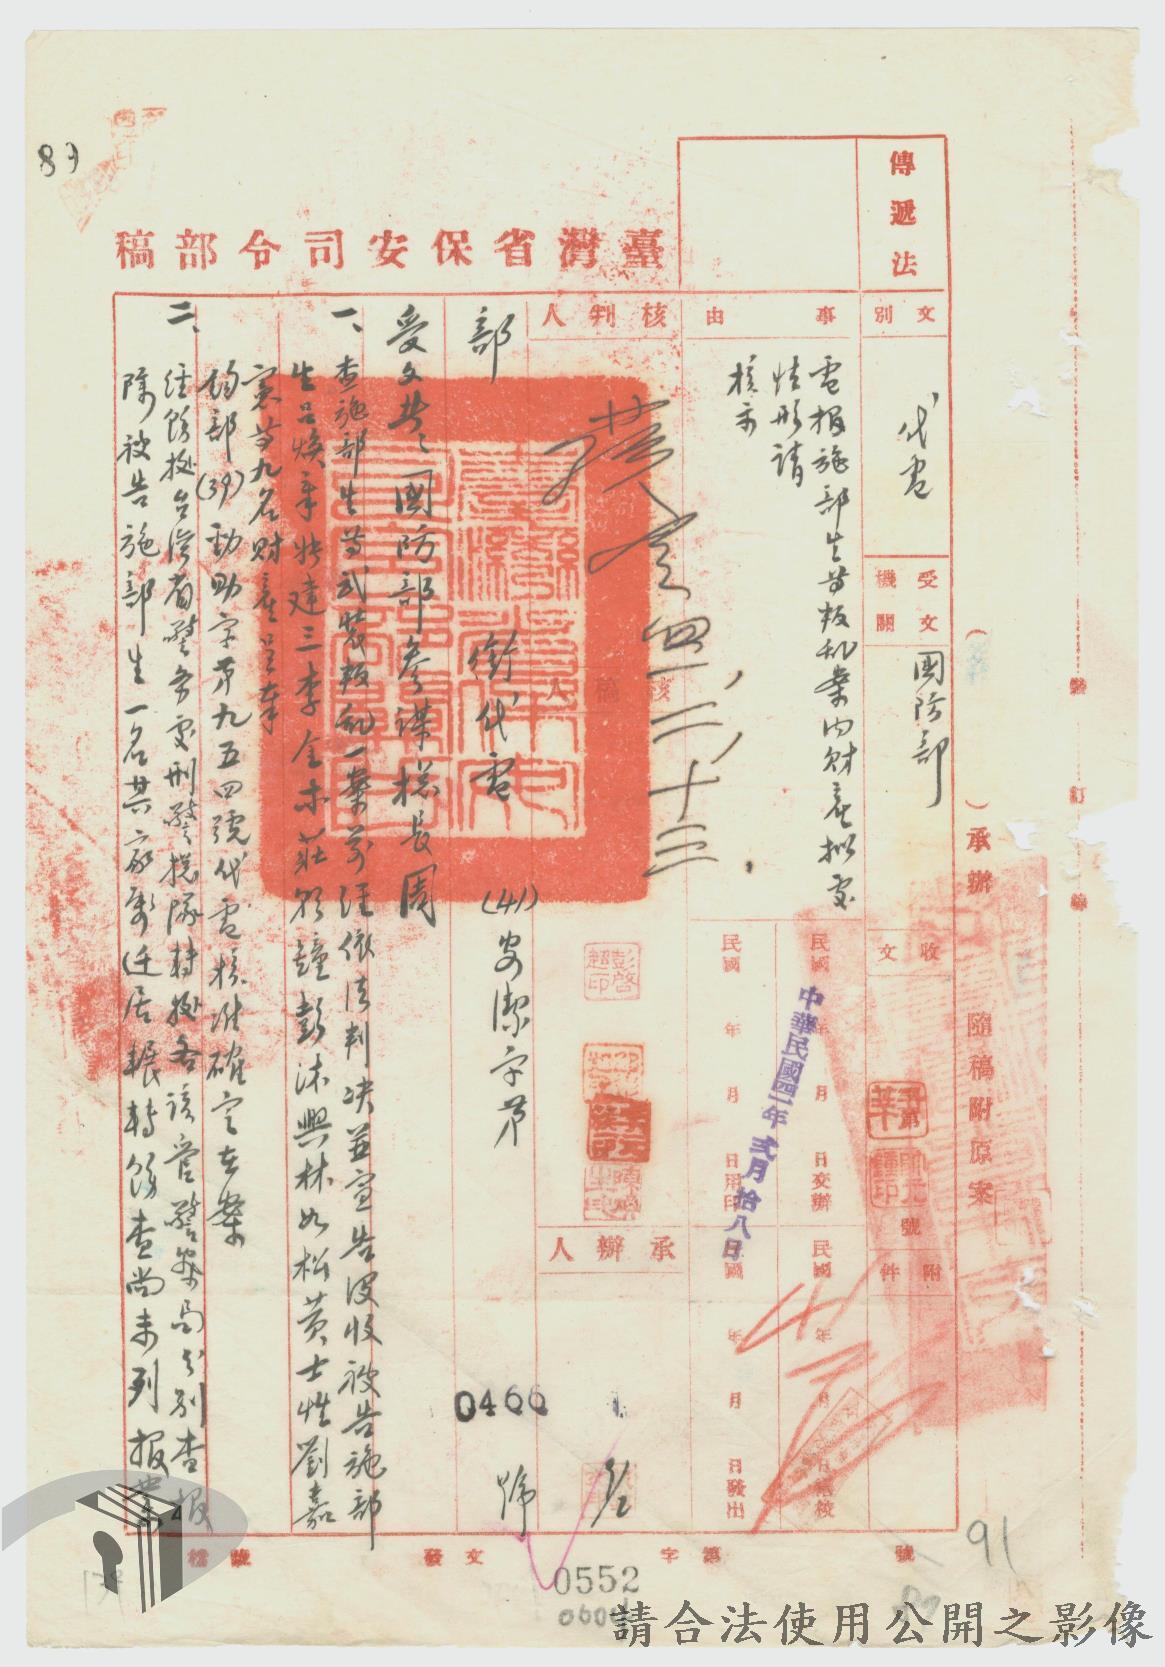 83
臺灣省保安司令部稿
傳遞法
文別
代電
受文機關
國防部
事由
電報施部生等叛乱案內財產拟處
情形請
核示
核判人
核稿人
四一、二、十三、
承辦人
收文
號
附件
民國 年 月 日交辦
民國 年 月 日繕校
民國 年 月 日用印
民國 年 月 日發出
中華民國四一年弍月拾八日
(
)承辦 隨稿附原案
部 銜代電 (41)安潔字第 0466 號
受文者：國防部參謀總長周
一、查施部生等武裝叛乱一案前经依法判决並宣告沒收被告施部
生呂煥章 建三李金木莊 鐘彭沐興林如松黄士性劉嘉
憲等九名財產呈奉
鈞部(39)勁助字第九五四號代電核准確定在案
二、经飭據台湾省警务處刑警總隊轉據各該管警察局分別查報
除被告施部生一名其家屬迁居輾轉飭查尚未列報
檔號
發文 字第 號
0552
91
請合法使用公開之影像